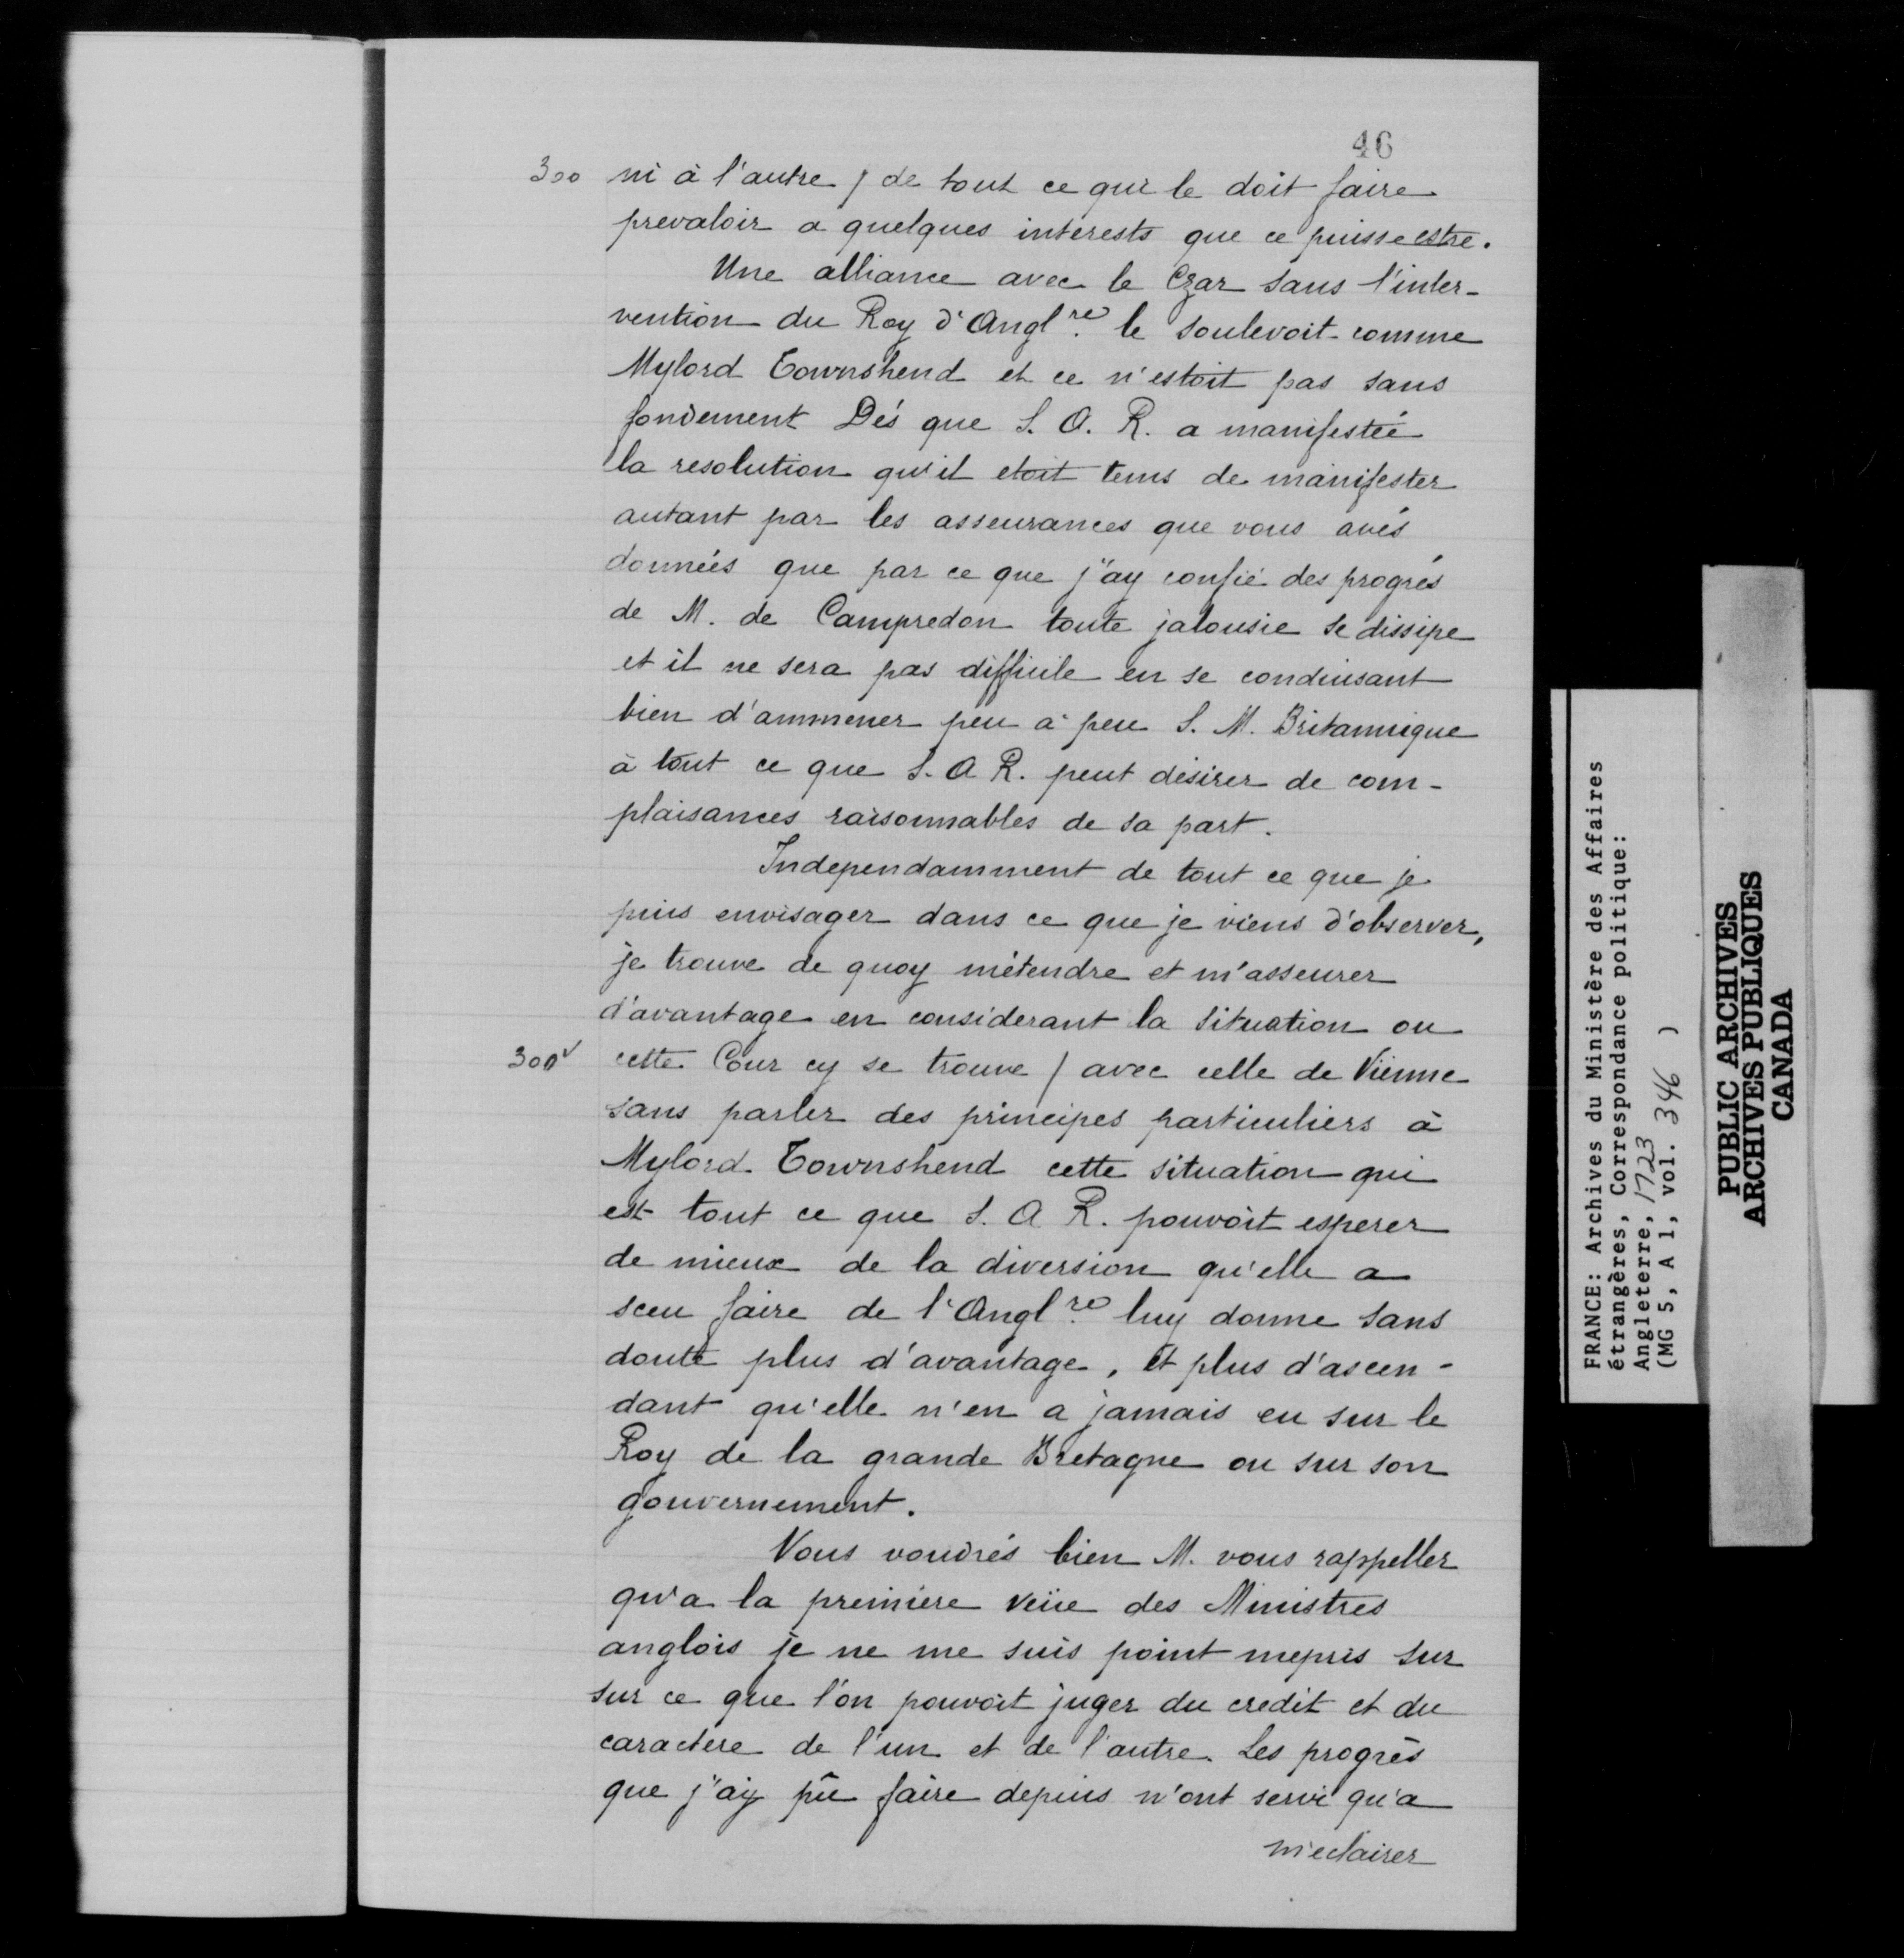 46
300 ni à l'autre / de tout ce qui le doit faire
prevaloir a quelques interests que ce puisse estre.
Une alliance avec le Czar sans l'inter-
vention du Roy d'Angl.re le soulevoit comme
Mylord Townshend et ce n'estoit pas sans
fondement Dés que S. A. R. a manifestée
la resolution qu'il etoit tems de manifester
autant par les asseurances que vous avés
données que par ce que j'ay confié des progrés
de M. de Campredon toute jalousie se dissipe
et il ne sera pas difficile en se conduisant
bien d'ammener peu à peu S. M. Britannique
à tout ce que S. A R. peut désirer de com-
plaisances raisonnables de sa part.
Independamment de tout ce que je
puis envisager dans ce que je viens d'observer,
je trouve de quoy m'étendre et m'asseurer
d'avantage en considerant la situation ou
300v cette Cour cy se trouve / avec celle de Vienne
sans parler des principes particuliers à
Mylord Townshend cette situation qui
est tout ce que S. A R. pouvoit esperer
de mieux de la diversion qu'elle a
sceu faire de l'Angl.re luy donne sans
doute plus d'avantage, et plus d'ascen-
dant qu'elle n'en a jamais eu sur le
Roy de la grande Bretagne ou sur son
gouvernement.
Vous voudrés bien M. vous rappeller
qu'a la premiere veüe des Ministres
anglois je ne me suis point mepris sur
sur ce que l'on pouvoit juger du credit et du
caractere de l'un et de l'autre. Les progrès
que j'ay pû faire depuis n'ont servi qu'a
m'eclairer
FRANCE: Archives du Ministère des Affaires
étrangères, Correspondance politique:
Angleterre, 1723
(MG 5, A 1, vol. 346 )
PUBLIC ARCHIVES
ARCHIVES PUBLIQUES
CANADA